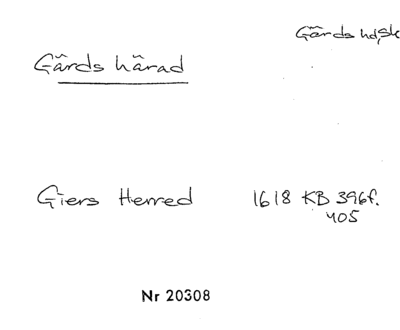 Gärds hd, Sk
Gärds härad
Giers Herred 1618 KB 396f.
405
Nr 20308